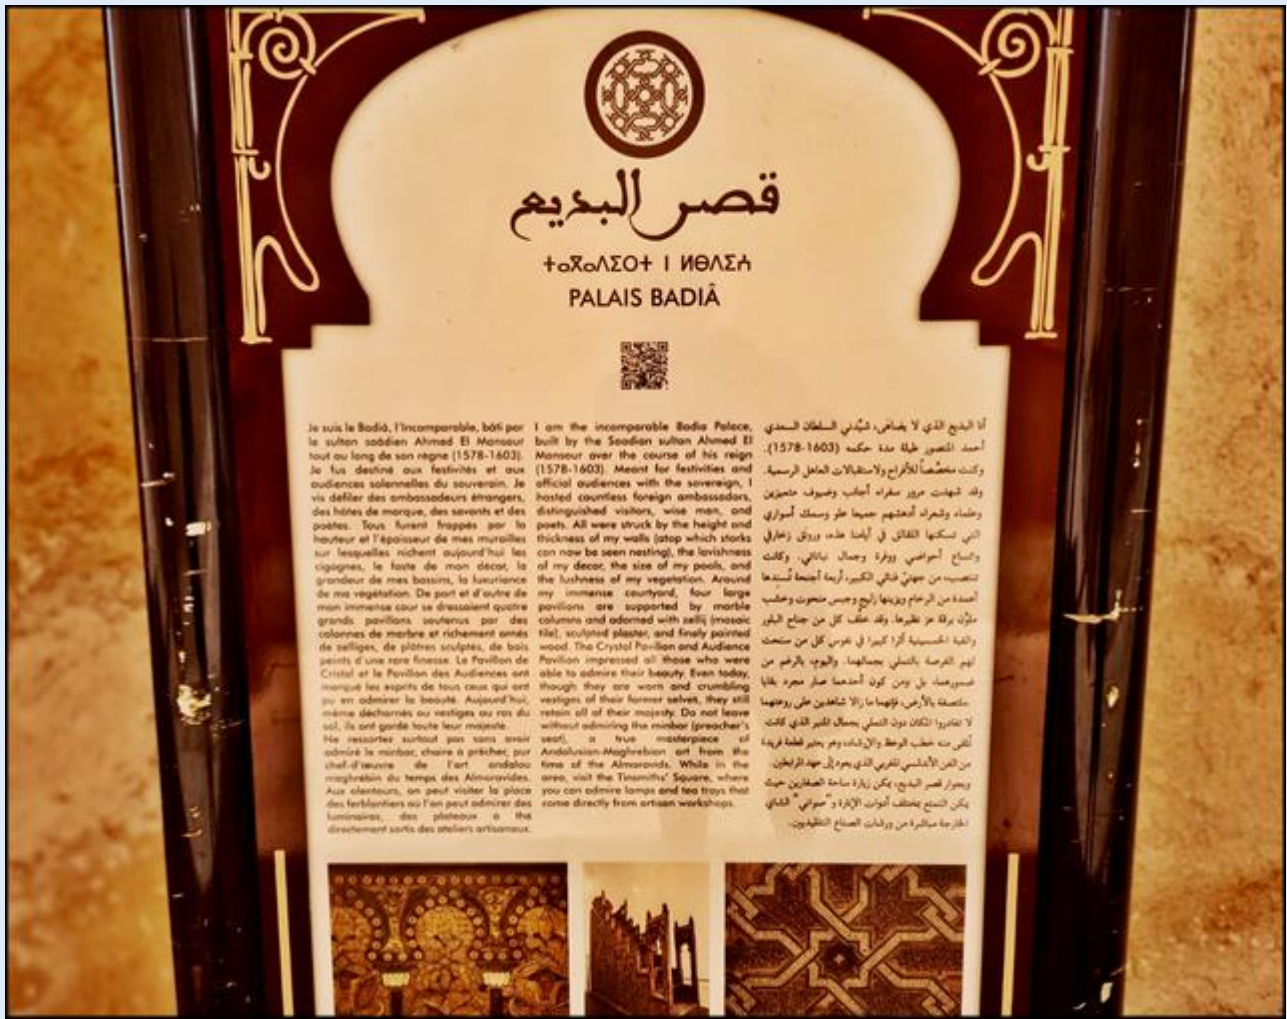 قصر البديع
ⵜⴰⴳⴰⴷⵉⵔⵜ ⵏ ⵍⴱⴷⵉⵄ
PALAIS BADIÂ
Je suis le Badiâ, l'Incomparable, bâti par
le sultan saâdien Ahmed El Mansour
tout au long de son règne (1578-1603).
Je fus destiné aux festivités et aux
audiences solennelles du souverain. Je
vis défiler des ambassadeurs étrangers,
des hôtes de marque, des savants et des
poètes. Tous furent frappés par la
hauteur et l'épaisseur de mes murailles
sur lesquelles nichent aujourd'hui les
cigognes, le faste de mon décor, la
grandeur de mes bassins, la luxuriance
de ma végétation. De part et d'autre de
mon immense cour se dressaient quatre
grands pavillons soutenus par des
colonnes de marbre et richement ornés
de zelliges, de plâtres sculptés, de bois
peints d'une rare finesse. Le Pavillon de
Cristal et le Pavillon des Audiences ont
marqué les esprits de tous ceux qui ont
pu en admirer la beauté. Aujourd'hui,
même décharnés ou vestiges au ras du
sol, ils ont gardé toute leur majesté.
Ne ressortez surtout pas sans avoir
admiré le minbar, chaire à prêcher, pur
chef-d'œuvre de l'art andalou
maghrébin du temps des Almoravides.
Aux alentours, on peut visiter la place
des ferblantiers où l'on peut admirer des
luminaires, des plateaux à thé
directement sortis des ateliers artisanaux.
I am the incomparable Badia Palace,
built by the Saadian sultan Ahmed El
Mansour over the course of his reign
(1578-1603). Meant for festivities and
official audiences with the sovereign, I
hosted countless foreign ambassadors,
distinguished visitors, wise men, and
poets. All were struck by the height and
thickness of my walls (atop which storks
can now be seen nesting), the lavishness
of my decor, the size of my pools, and
the lushness of my vegetation. Around
my immense courtyard, four large
pavilions are supported by marble
columns and adorned with zellij (mosaic
tile), sculpted plaster, and finely painted
wood. The Crystal Pavilion and Audience
Pavilion impressed all those who were
able to admire their beauty. Even today,
though they are worn and crumbling
vestiges of their former selves, they still
retain all of their majesty. Do not leave
without admiring the minbar (preacher's
seat), a true masterpiece of
Andalusian-Maghrebian art from the
time of the Almoravids. While in the
area, visit the Tinsmiths' Square, where
you can admire lamps and tea trays that
come directly from artisan workshops.
أنا البديع الذي لا يضاهى، شيَّدني السلطان السعدي
أحمد المنصور طيلة مدة حكمه (1603-1578).
وكنت مخصَّصاً للأفراح ولاستقبالات العاهل الرسمية.
وقد شهدت مرور سفراء أجانب وضيوف متميزين
وعلماء وشعراء أدهشهم جميعا علو وسمك أسواري
التي تسكنها اللقالق في أيامنا هذه، ورونق زخارفي
واتساع أحواضي ووفرة وجمال نباتاتي. وكانت
تنتصب، من جهتيْ فنائي الكبير، أربعة أجنحة تُسندها
أعمدة من الرخام ويزينها زليج وجبس منحوت وخشب
ملوَّن برقة عز نظيرها. وقد خلَّف كل من جناح البلور
والقبة الخمسينية أثرا كبيرا في نفوس كل من سنحت
لهم الفرصة بالتملي بجمالهما. واليوم، بالرغم من
ضمورهما، بل ومن كون أحدهما صار مجرد بقايا
ملتصقة بالأرض، فإنهما ما زالا شاهدين على روعتهما
لا تغادروا المكان دون التملي بجمال المنبر الذي كانت
تلقى منه خطب الوعظ والإرشاد، وهو يعتبر قطعة فريدة
من الفن الأندلسي المغربي الذي يعود إلى عهد المرابطين.
وبجوار قصر البديع، يمكن زيارة ساحة الصفارين حيث
يمكن التمتع بمختلف أدوات الإنارة و"صواني" الشاي
الخارجة مباشرة من ورشات الصناع التقليديين.